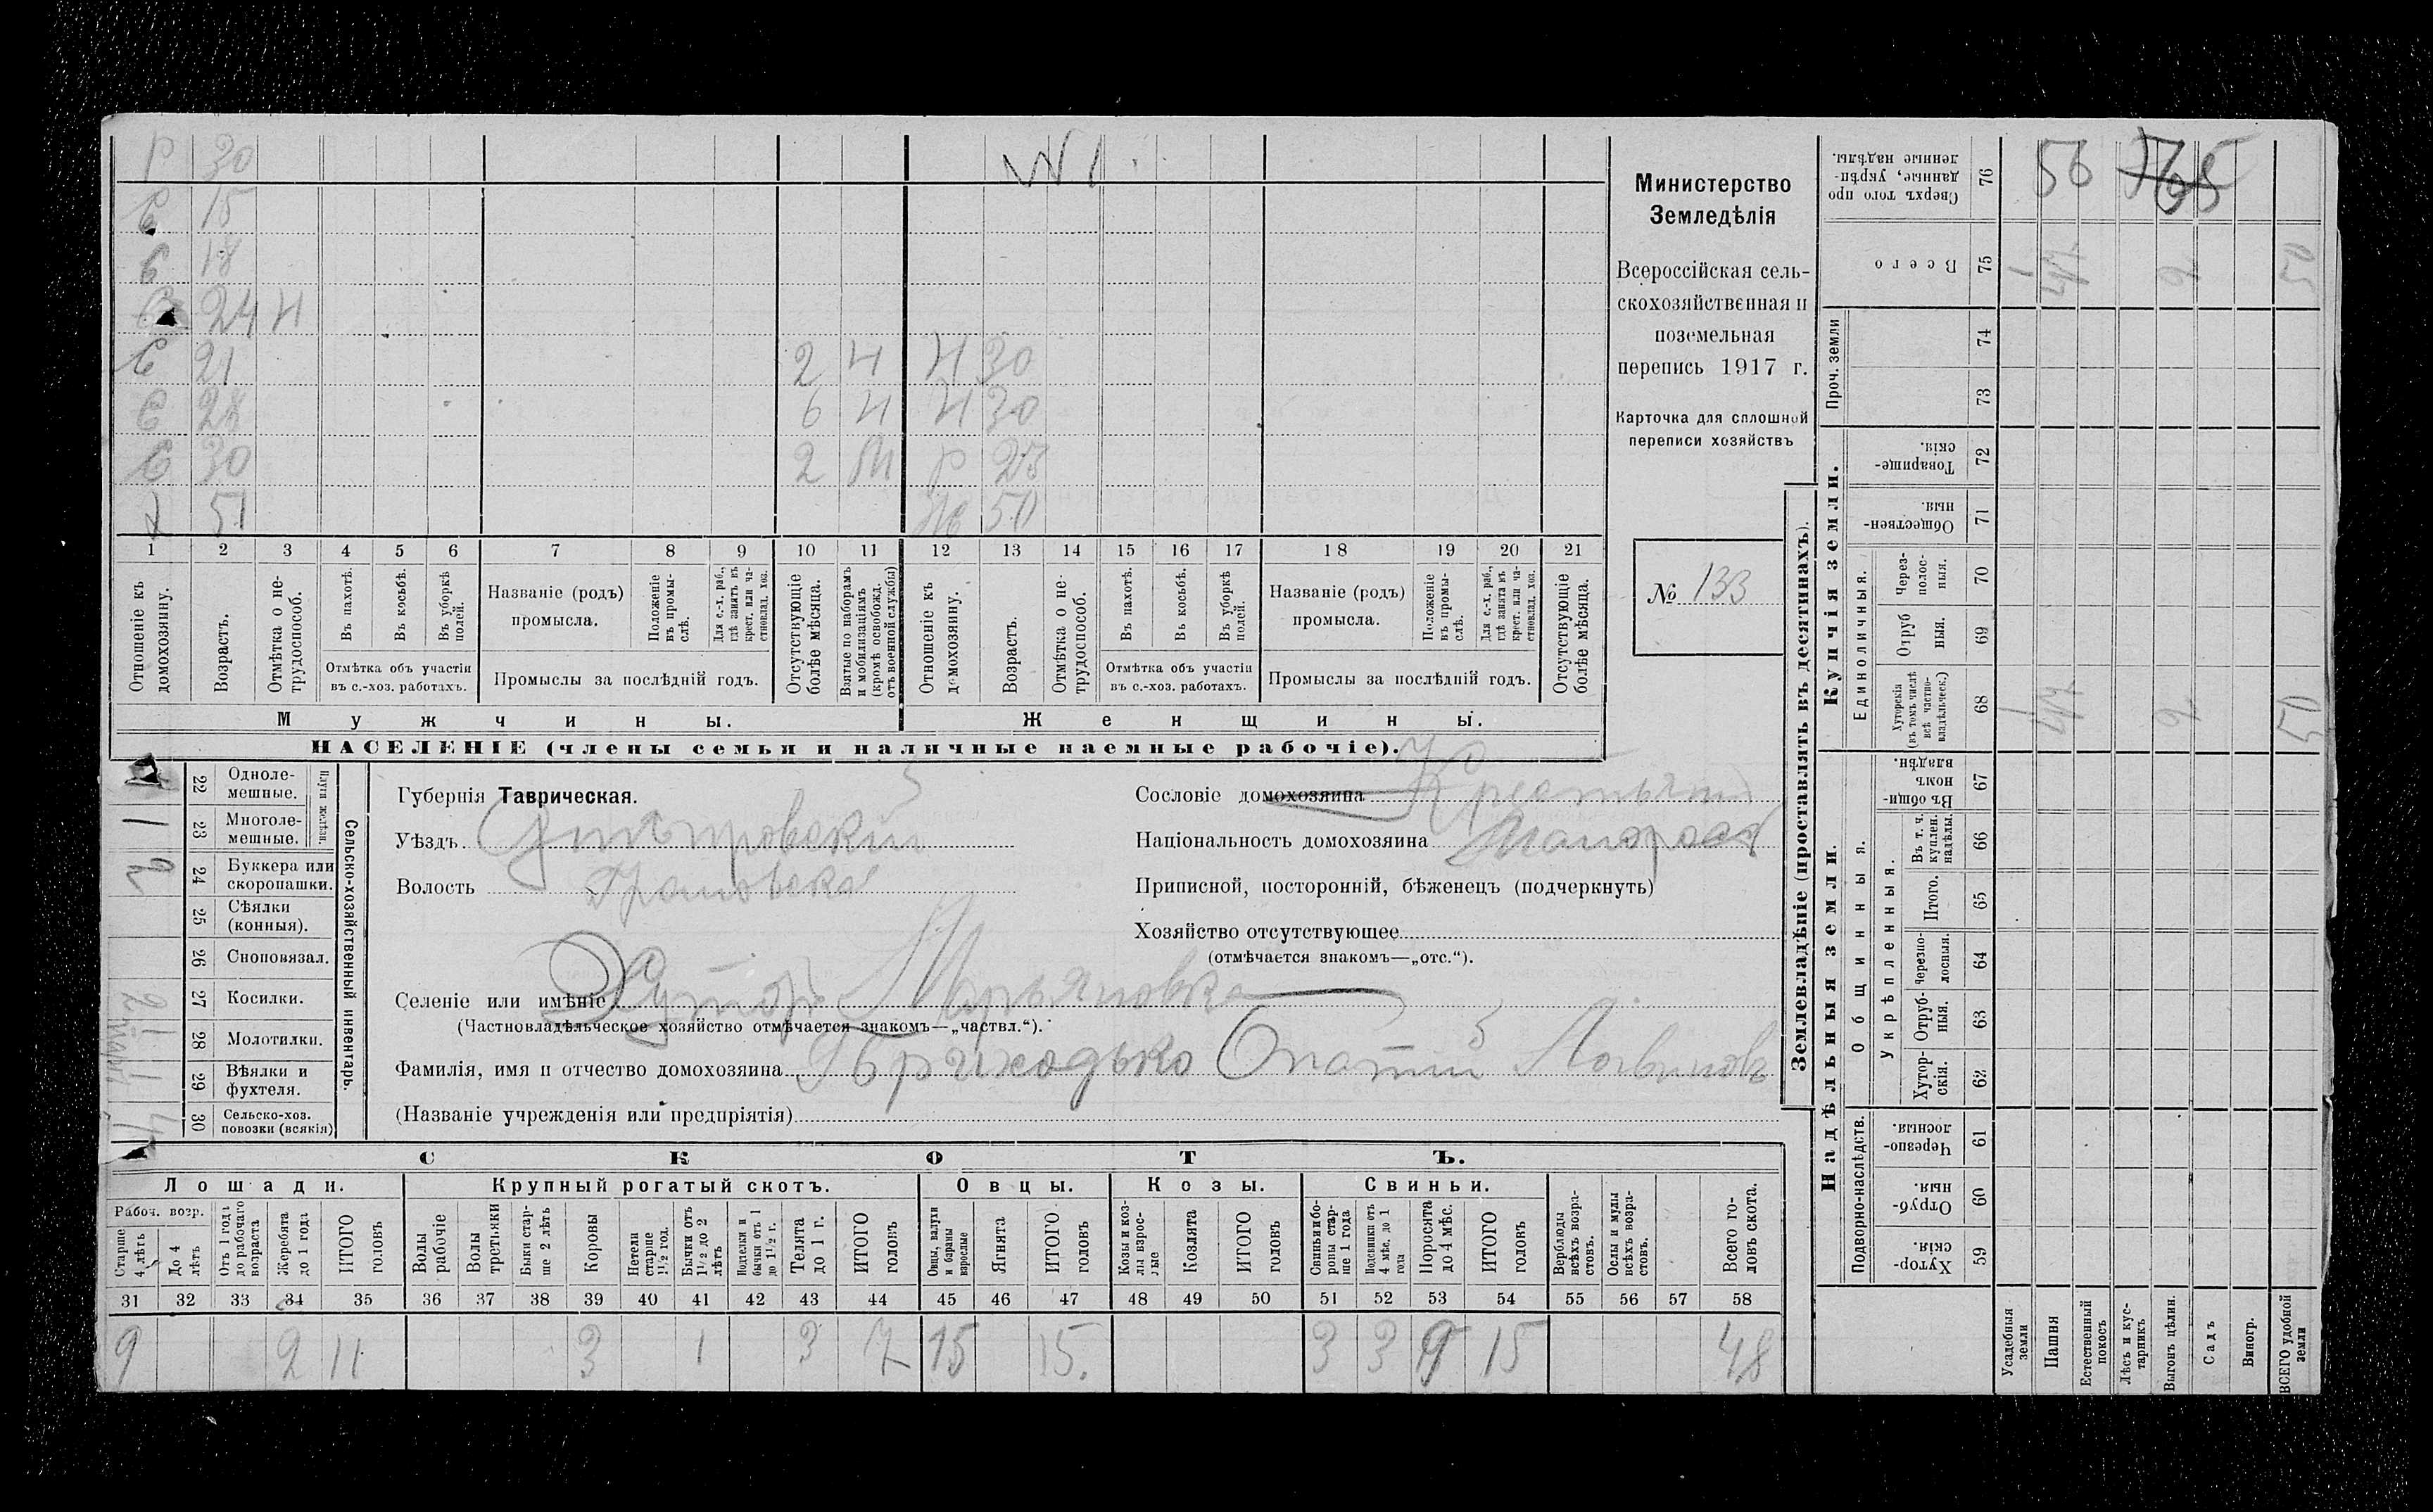 Р 30
№ 1.
С 15
С 18
С 24 Н
С 21 2 Н Н 30
С 28 6 Н Н 30
С 30 2 Р 23
Х 51 50
1 2 3 4 5 6 7 8 9 10 11 12 13 14 15 16 17 18 19 20 21
Отношеніе къ домохозяину.
Возрастъ.
Отмѣтка о не-трудоспособ.
Въ пахотѣ.
Въ косьбѣ.
Въ уборкѣ полей.
Отмѣтка объ участіи въ с.-хоз. работахъ.
Названіе (родъ) промысла.
Положеніе въ промы-слѣ.
Для с.-х. раб., гдѣ занятъ въ крест. или ча-стновлад. хоз.
Промыслы за послѣдній годъ.
Отсутствующіе болѣе мѣсяца.
Взятые по наборамъ и мобилизаціямъ (кромѣ освобожд. отъ военной службы)
Отношеніе къ домохозяину.
Возрастъ.
Отмѣтка о не-трудоспособ.
Въ пахотѣ.
Въ косьбѣ.
Въ уборкѣ полей.
Отмѣтка объ участіи въ с.-хоз. работахъ.
Названіе (родъ) промысла.
Положеніе въ промы-слѣ.
Для с.-х. раб., гдѣ занята въ крест. или ча-стновлад. хоз.
Промыслы за послѣдній годъ.
Отсутствующіе болѣе мѣсяца.
Мужчины.
Женщины.
НАСЕЛЕНІЕ (члены семьи и наличные наемные рабочіе).
Министерство
Земледѣлія
Всероссійская сель-
скохозяйственная и
поземельная
перепись 1917 г.
Карточка для сплошной
переписи хозяйствъ
№ 133
Губернія Таврическая.
Уѣздъ Днѣпровскій
Волость
Селеніе или имѣніе Хуторъ Марьяновка
(Частновладѣльческое хозяйство отмѣчается знакомъ—„частвл.“).
Фамилія, имя и отчество домохозяина Приходько Опатій Логвиновъ
(Названіе учрежденія или предпріятія)
Сословіе домохозяина
Національность домохозяина Малорос
Приписной, посторонній, бѣженецъ (подчеркнуть)
Хозяйство отсутствующее
(отмѣчается знакомъ—„отс.“).
Сельско-хозяйственный инвентарь.
Плуги желѣзн.
22 Одноле-мешные.
23 Многоле-мешные. 1
24 Буккера или скоропашки. 2
25 Сѣялки (конныя).
26 Сноповязал.
27 Косилки.
28 Молотилки.
29 Вѣялки и фухтеля. 1
30 Сельско-хоз. повозки (всякія) 4
СКОТЪ.
Лошади. Крупный рогатый скотъ. Овцы. Козы. Свиньи.
Рабоч. возр.
Старше 4 лѣтъ
До 4 лѣтъ
Отъ 1 года до рабочаго возраста
Жеребята до 1 года
ИТОГО головъ
Волы рабочіе
Волы третьяки
Быки стар-ше 2 лѣтъ
Коровы
Нетели старше 1½ год.
Бычки отъ 1½ до 2 лѣтъ
Подтелки и бычки отъ 1 до 1½ г.
Телята до 1 г.
ИТОГО головъ
Овцы, валухи и бараны взрослые
Ягнята
ИТОГО головъ
Козы и коз-лы взрос-лые
Козлята
ИТОГО головъ
Свиньи и бо-ровы стар-ше 1 года
Подсвинки отъ 4 мѣс. до 1 года
Поросята до 4 мѣс.
ИТОГО головъ
Верблюды всѣхъ возра-стовъ.
Ослы и мулы всѣхъ возра-стовъ.
Всего го-ловъ скота.
31 32 33 34 35 36 37 38 39 40 41 42 43 44 45 46 47 48 49 50 51 52 53 54 55 56 57 58
9 2 11 3 1 3 7 15 15. 3 3 9 15 48
Землевладѣніе (проставлять въ десятинахъ).
Купчія земли.
Надѣльныя земли.
76 Сверхъ того про-данные, укрѣп-ленные надѣлы. 56
75 Всего 1 2 50
Проч. земли
74
73
72 Товарище-скія.
71 Обществен-ныя.
Единоличныя.
70 Через-полос-ныя.
69 Отруб-ныя.
68 Хуторскія (въ томъ числѣ всѣ частно-владѣльческ.) 1 2 50
67 Въ общи-номъ владѣн.
Общинныя.
Укрѣпленныя.
66 Въ т. ч. куплен. надѣлы.
65 Итого.
64 Черезпо-лосныя.
63 Отруб-ныя.
62 Хутор-скія.
Подворно-наслѣдств.
61 Черезпо-лосныя.
60 Отруб-ныя.
59 Хутор-скія.
Усадебныя земли
Пашня
Естественный покосъ
Лѣсъ и кус-тарникъ
Выгонъ цѣлин.
Садъ
Виногр.
ВСЕГО удобной земли